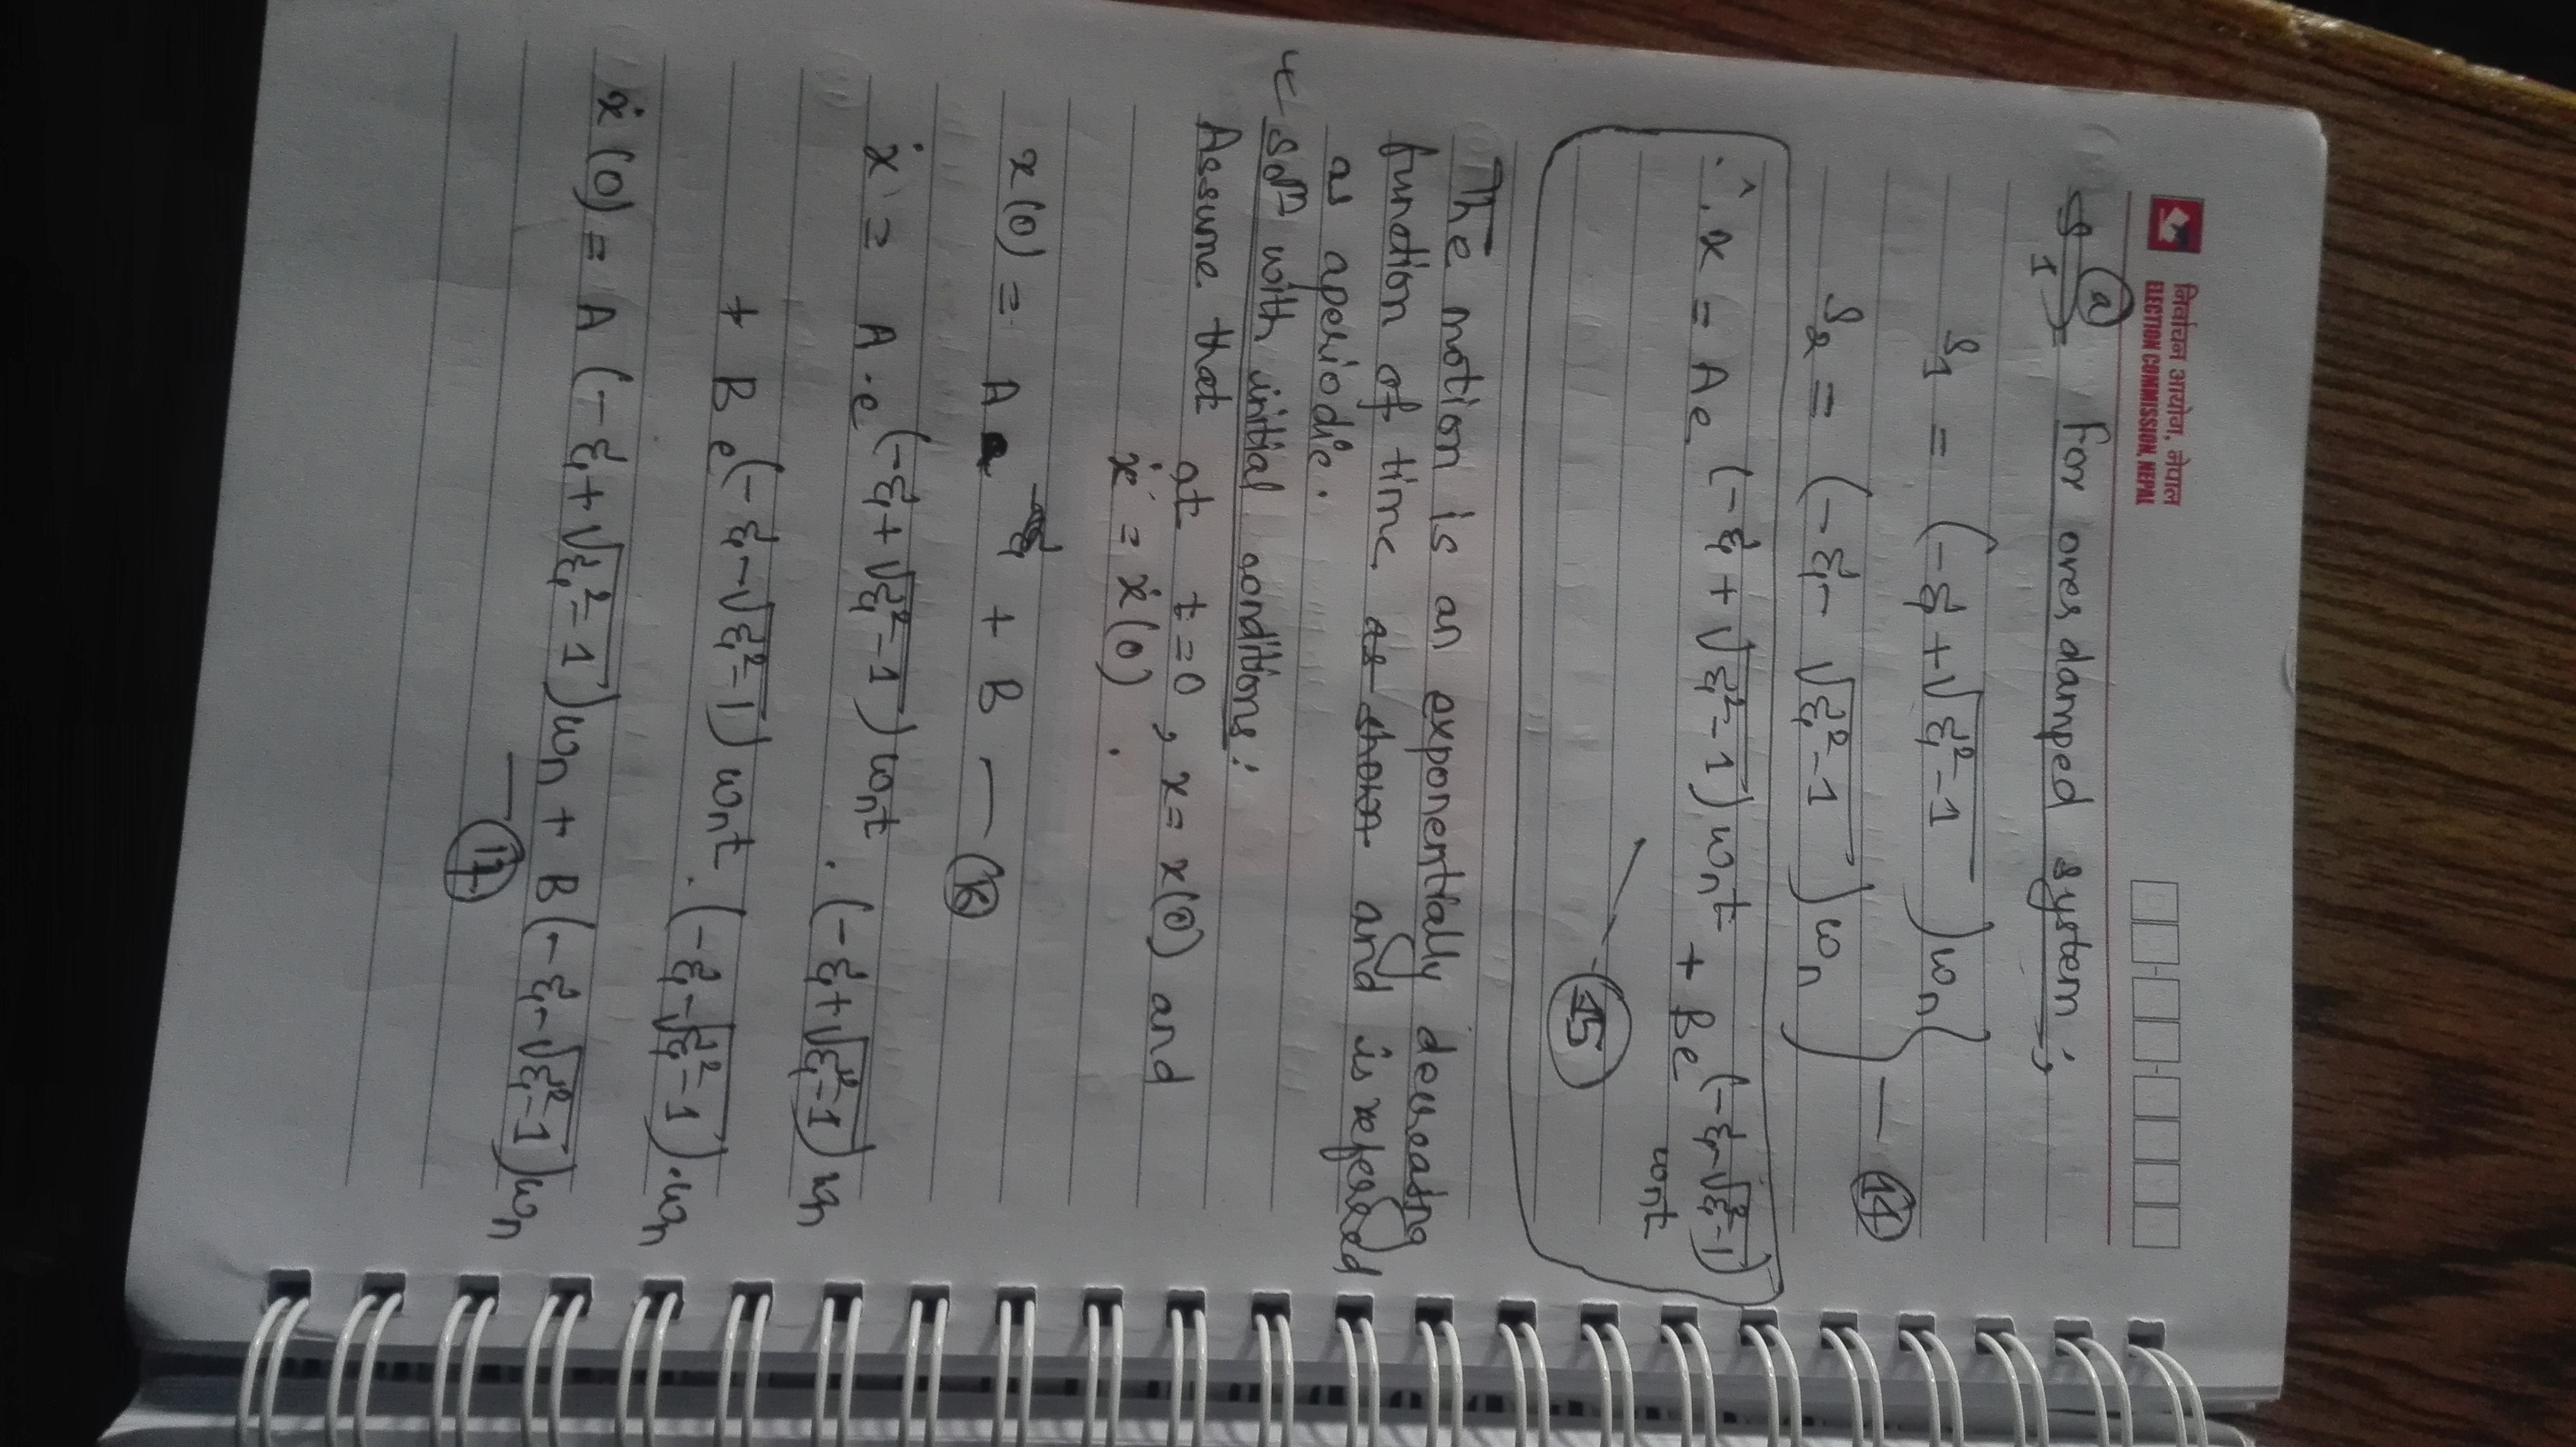 निर्वाचन आयोग, नेपाल
ELECTION COMMISSION, NEPAL
(a) For over damped system :→
S1 = (-ξ + √ξ²-1) ωn
S2 = (-ξ - √ξ²-1) ωn } — (14)
∴ x = Ae (-ξ + √ξ²-1) ωnt + Be (-ξ - √ξ²-1)
ωnt
— (15)
The motion is an exponentially decreating
function of time as shown and is refereed
as aperiodic.
Solⁿ with initial conditions:
Assume that at t=0, x = x(0) and
ẋ = ẋ(0).
x(0) = A + B — (16)
ẋ = A.e (-ξ + √ξ²-1) ωnt . (-ξ + √ξ²-1) ωn
+ B e (-ξ - √ξ²-1) ωnt . (-ξ - √ξ²-1) . ωn
ẋ(0) = A (-ξ + √ξ²-1) ωn + B (-ξ - √ξ²-1) ωn
— (17)